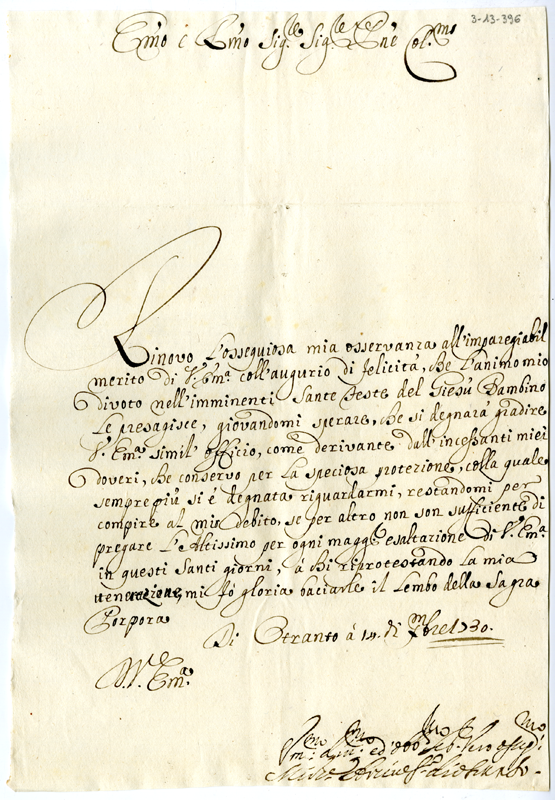 3-13-396
Em̃o e Rm̃o Sig.re Sig.re e Pne Col.mo
Rinovo l'ossequiosa mia osservanza all'impareggiabil
merito di V. Em.a coll'augurio di felicità, che l'animo mio
divoto nell'imminenti Sante Feste del Giesù Bambino
Le presagisce, giovandomi sperare, che si degnarà gradire
V. Em.a simil' officio, come derivante dall'incessanti miei
doveri, che conservo per la speciosa protezione, colla quale
sempre più si è degnata riguardarmi, restandomi per
compire al mio debito, se per altro non son sufficiente di
pregare l'Altissimo per ogni magg.e esaltazione di V. Em.a
in questi Santi giorni, à chi riprotestando la mia
venerazione, mi fò gloria baciarle il Lembo della Sagra
Porpora
Di Otranto à 14. di Xbre 1730.
V. Em.a